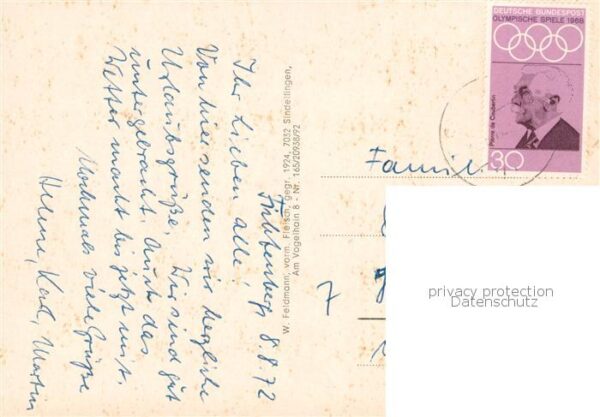 Fichtenberg, 8.8.72
Ihr Lieben alle!
Von hier senden wir herzliche
Urlaubsgrüße. Wir sind gut
untergebracht. Auch das
Wetter macht bis jetzt mit.
Nochmals viele Grüße
Helene, Karl, Martin
W. Feldmann, vorm. Fleisch, gegr. 1924, 7032 Sindelfingen,
Am Vogelhain 8 - Nr. 165/20938/92
DEUTSCHE BUNDESPOST
OLYMPISCHE SPIELE 1968
Pierre de Coubertin
30
Famili
7
privacy protection
Datenschutz